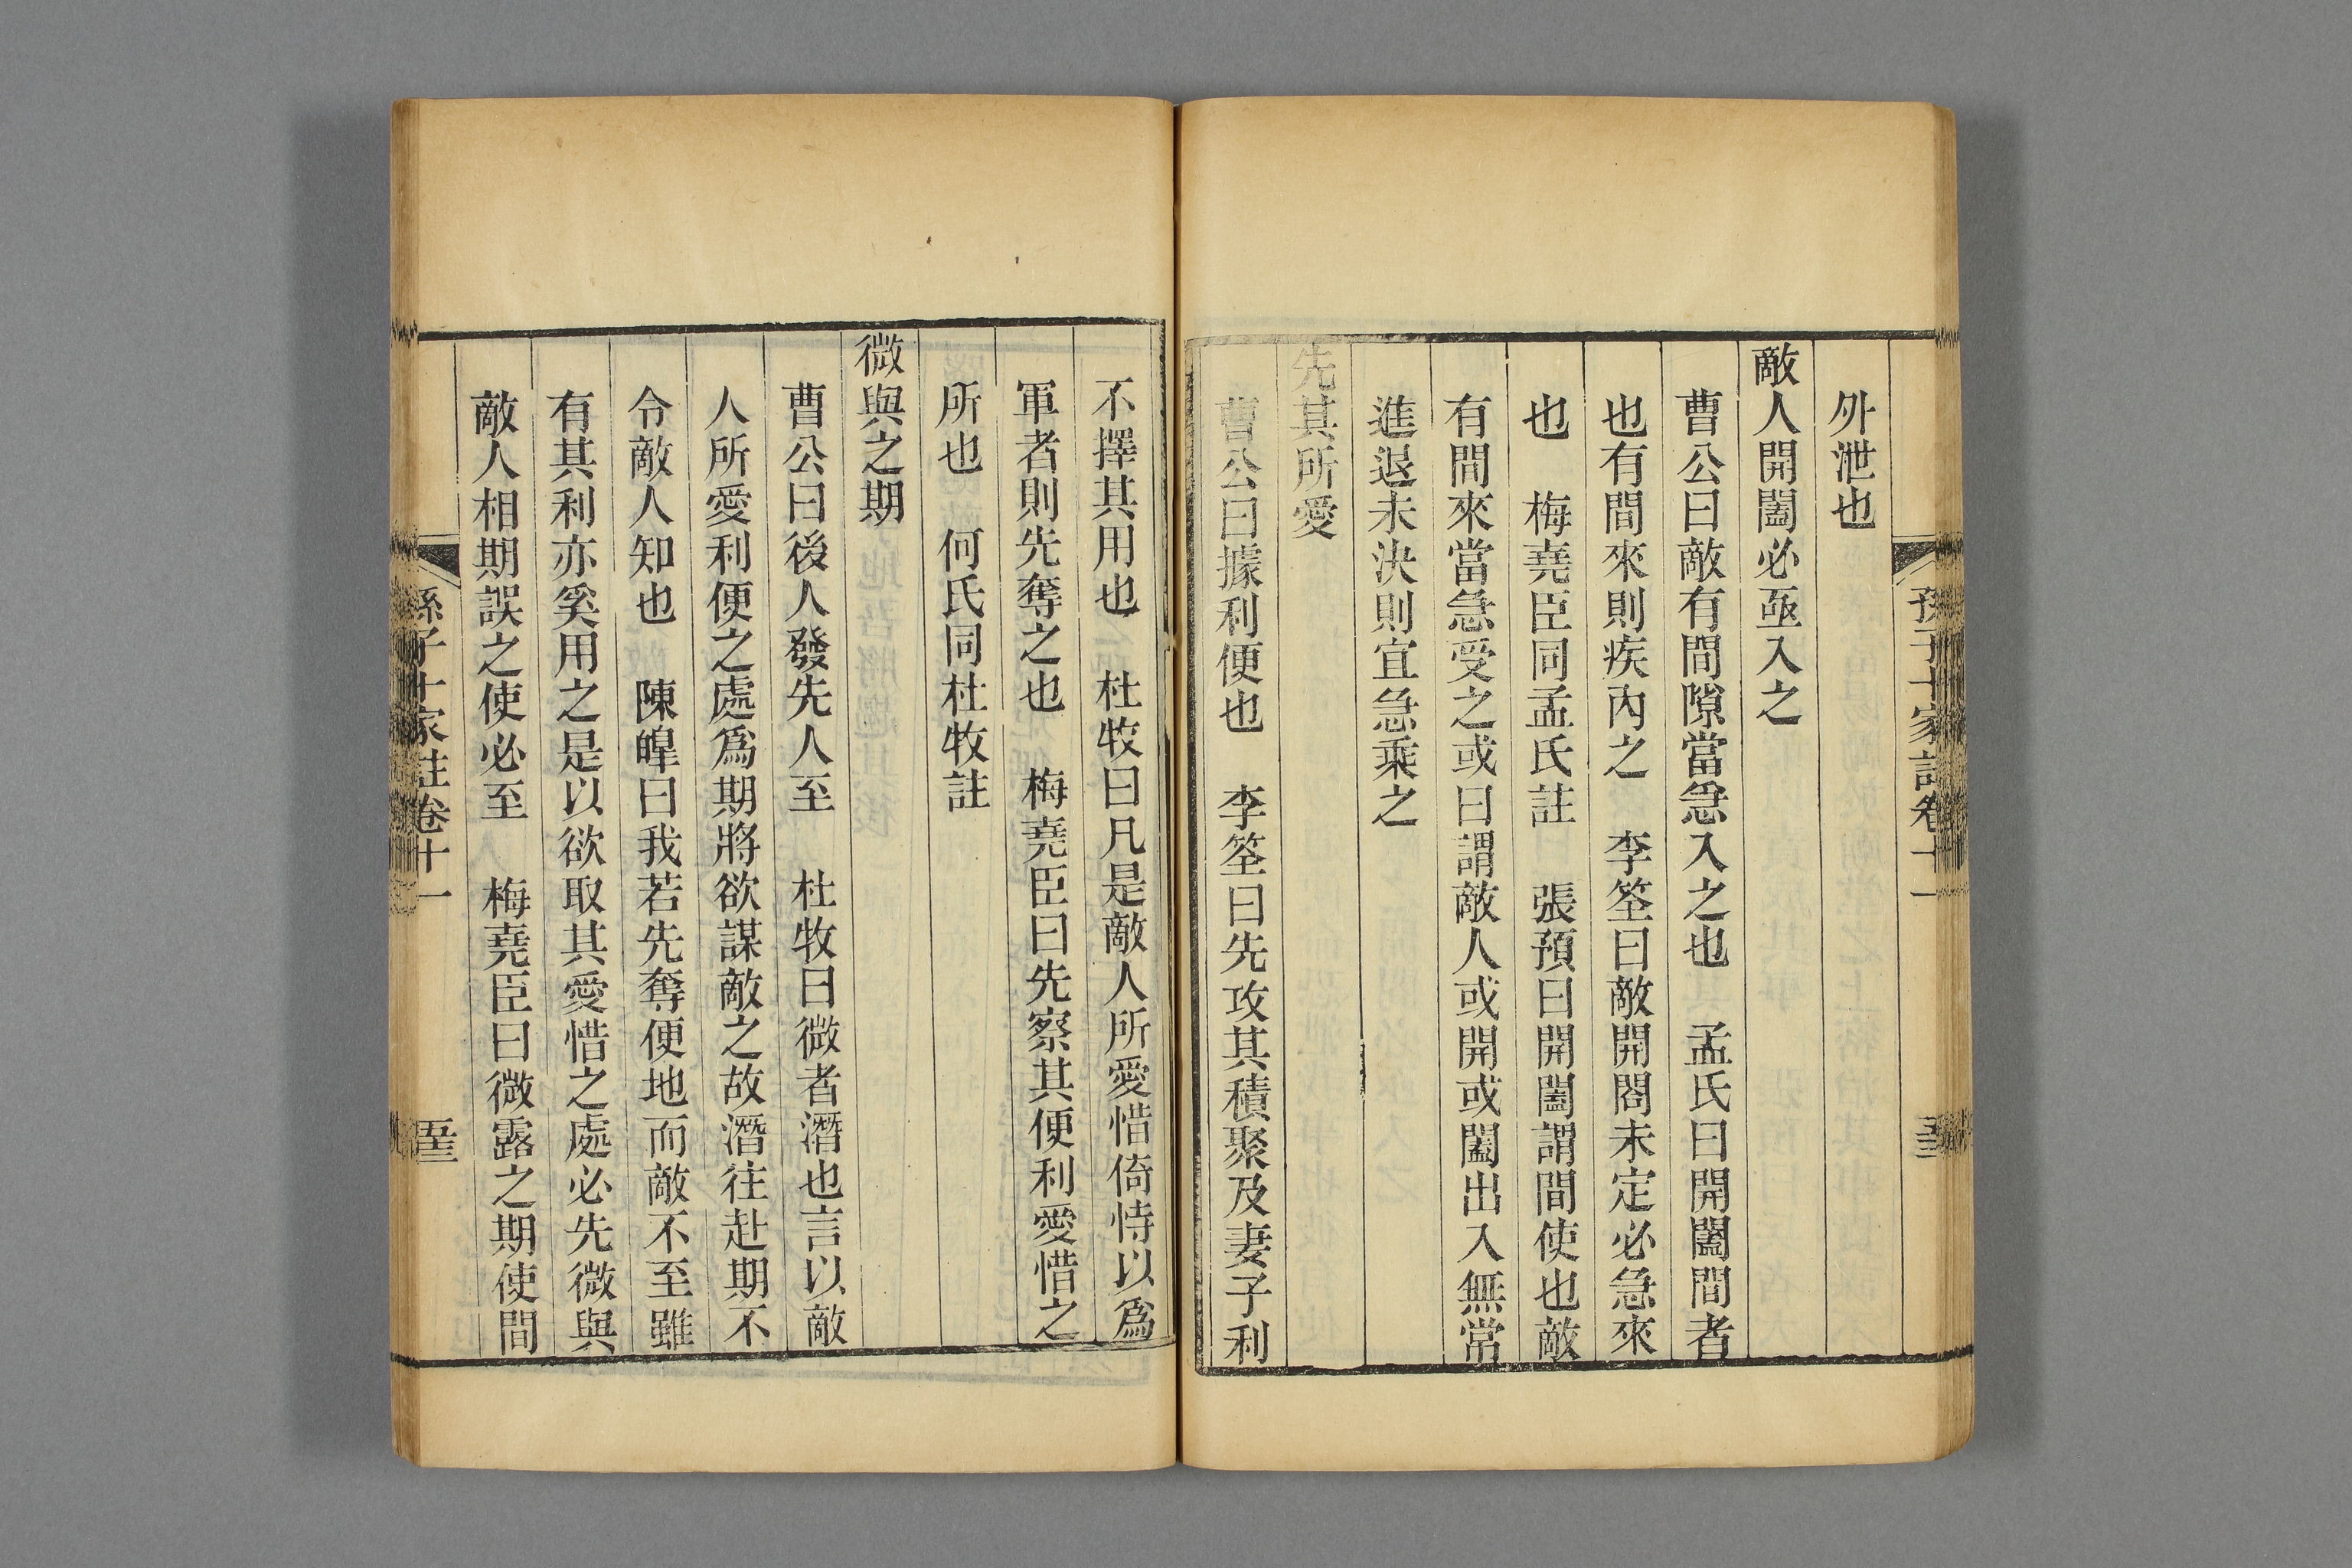 外泄也
敵人開闔必亟入之
曹公曰敵有間隙當急入之也　孟氏曰開闔間者
也有間來則疾內之　李筌曰敵開闔未定必急來
也　梅堯臣同孟氏註　張預曰開闔謂間使也敵
有間來當急受之或曰謂敵人或開或闔出入無常
進退未決則宜急乗之
先其所愛
曹公曰據利便也　李筌曰先攻其積聚及妻子利
不擇其用也　杜牧曰凡是敵人所愛惜倚恃以爲
軍者則先奪之也　梅堯臣曰先察其便利愛惜之
所也　何氏同杜牧註
微與之期
曹公曰後人發先人至　杜牧曰微者潛也言以敵
人所愛利便之處爲期將欲謀敵之故潛往赴期不
令敵人知也　陳皥曰我若先奪便地而敵不至雖
有其利亦奚用之是以欲取其愛惜之處必先微與
敵人相期誤之使必至　梅堯臣曰微露之期使間
孫子十家註卷十一